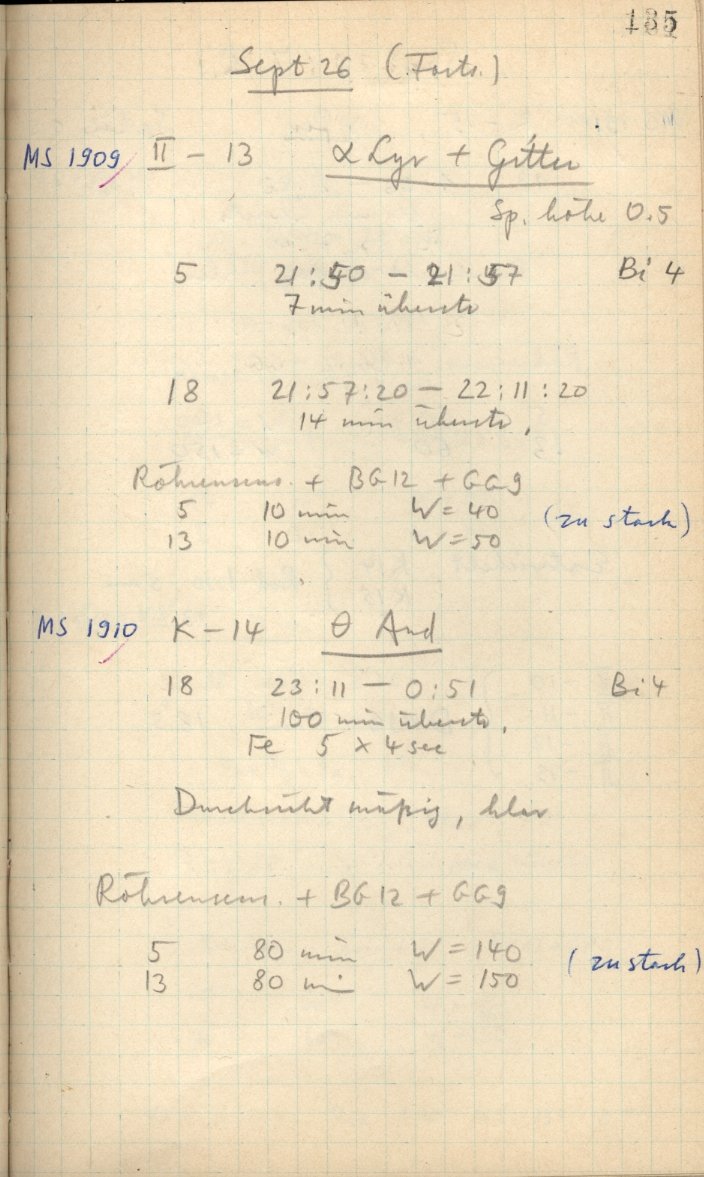 135
Sept 26 (Forts.)
MS 1909 II – 13 α Lyr + Gitter
Sp. höhe 0.5
5 21:50 – 21:57 Bi 4
7 min überstr
18 21:57:20 – 22:11:20
14 min überstr.
Röhrensens. + BG12 + GG9
5 10 min W = 40 (zu stark)
13 10 min W = 50
MS 1910 K – 14 θ And
18 23:11 – 0:51 Bi 4
100 min überstr.
Fe 5 × 4 sec
Durchsicht mäßig, klar
Röhrensens. + BG12 + GG9
5 80 min W = 140 (zu stark)
13 80 min W = 150